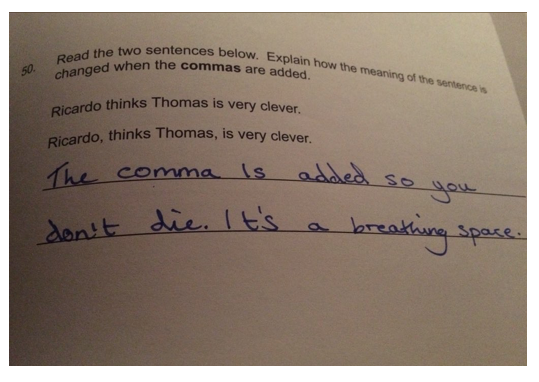 50. Read the two sentences below. Explain how the meaning of the sentence is
changed when the commas are added.
Ricardo thinks Thomas is very clever.
Ricardo, thinks Thomas, is very clever.
The comma is added so you
don't die. It's a breathing space.